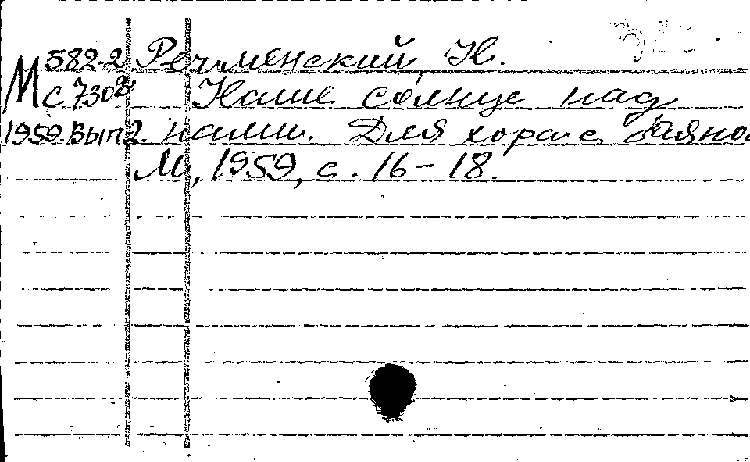 582-2 Речменский, Н.
М С 730в Наше солнце над
1959. Вып 2 нами. Для хора с баяно
М, 1959, с. 16-18.